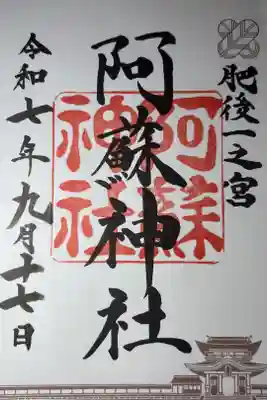 肥後一之宮
阿蘇神社
阿蘇
神社
令和七年九月十七日